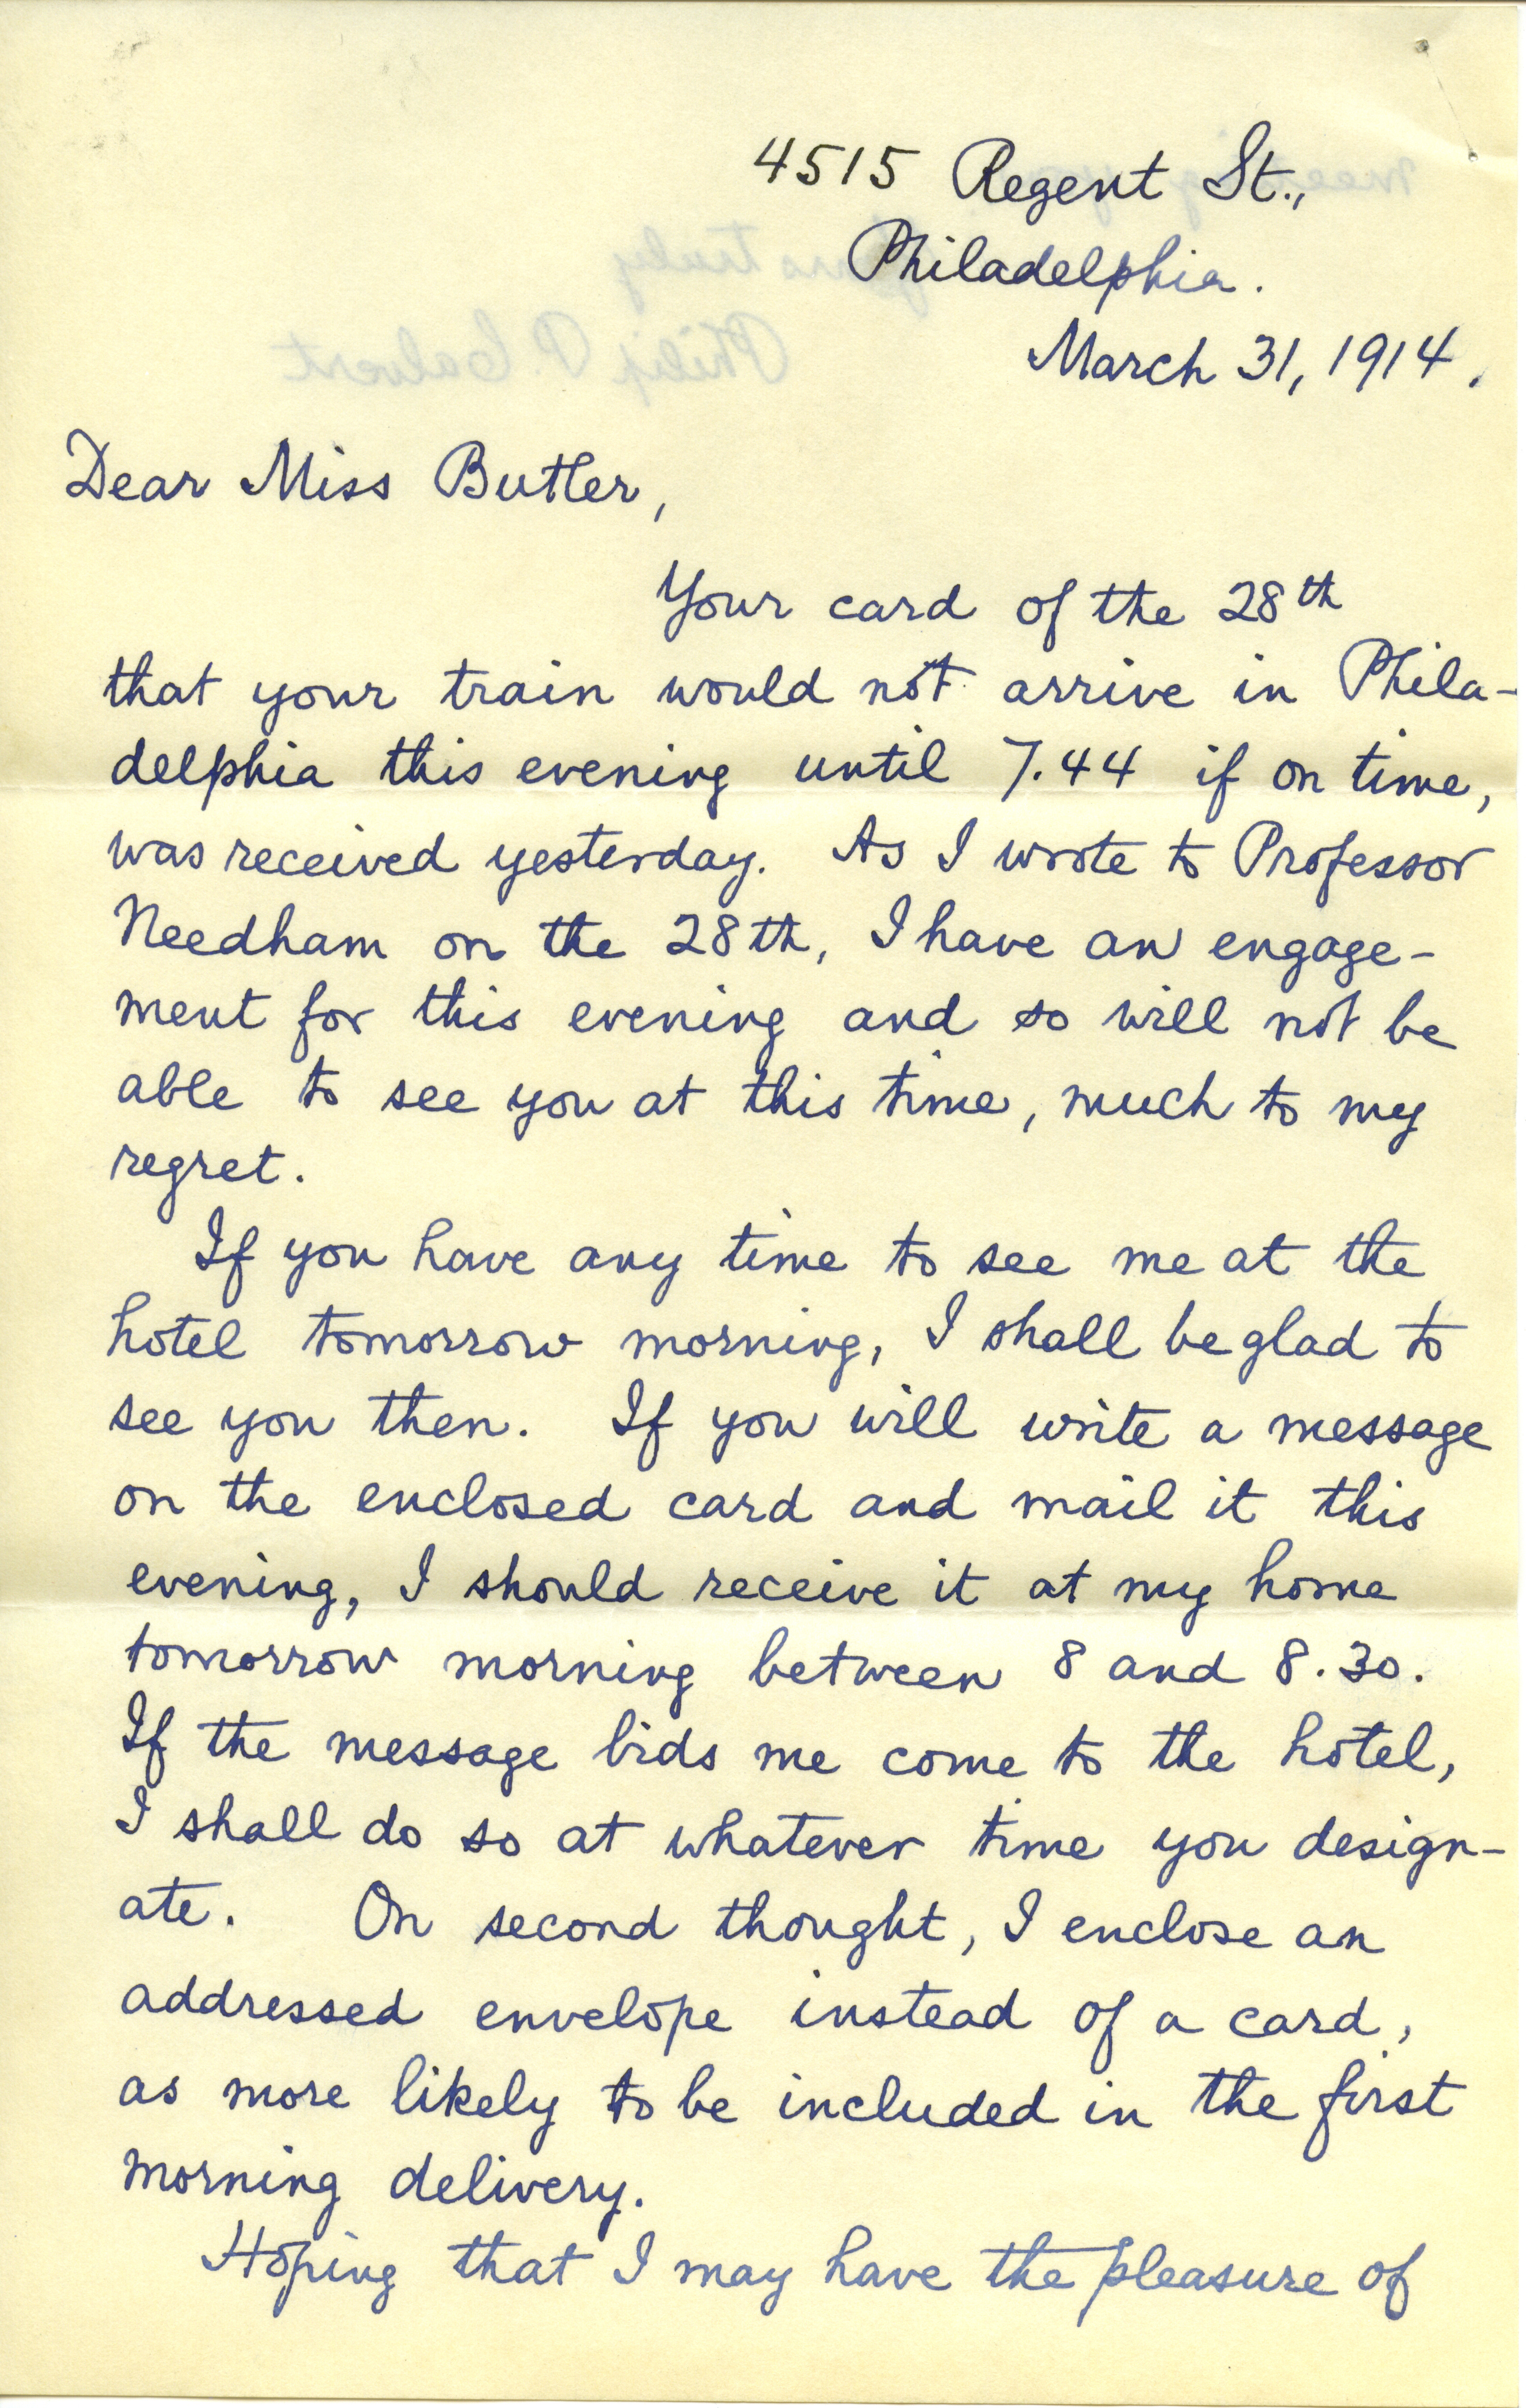 4515 Regent St.,
Philadelphia.
March 31, 1914.
Dear Miss Butler,
Your card of the 28th
that your train would not arrive in Phila-
delphia this evening until 7.44 if on time,
was received yesterday. As I wrote to Professor
Needham on the 28th, I have an engage-
ment for this evening and so will not be
able to see you at this time, much to my
regret.
If you have any time to see me at the
hotel tomorrow morning, I shall be glad to
see you then. If you will write a message
on the enclosed card and mail it this
evening, I should receive it at my home
tomorrow morning between 8 and 8.30.
If the message bids me come to the hotel,
I shall do so at whatever time you design-
ate. On second thought, I enclose an
addressed envelope instead of a card,
as more likely to be included in the first
morning delivery.
Hoping that I may have the pleasure of